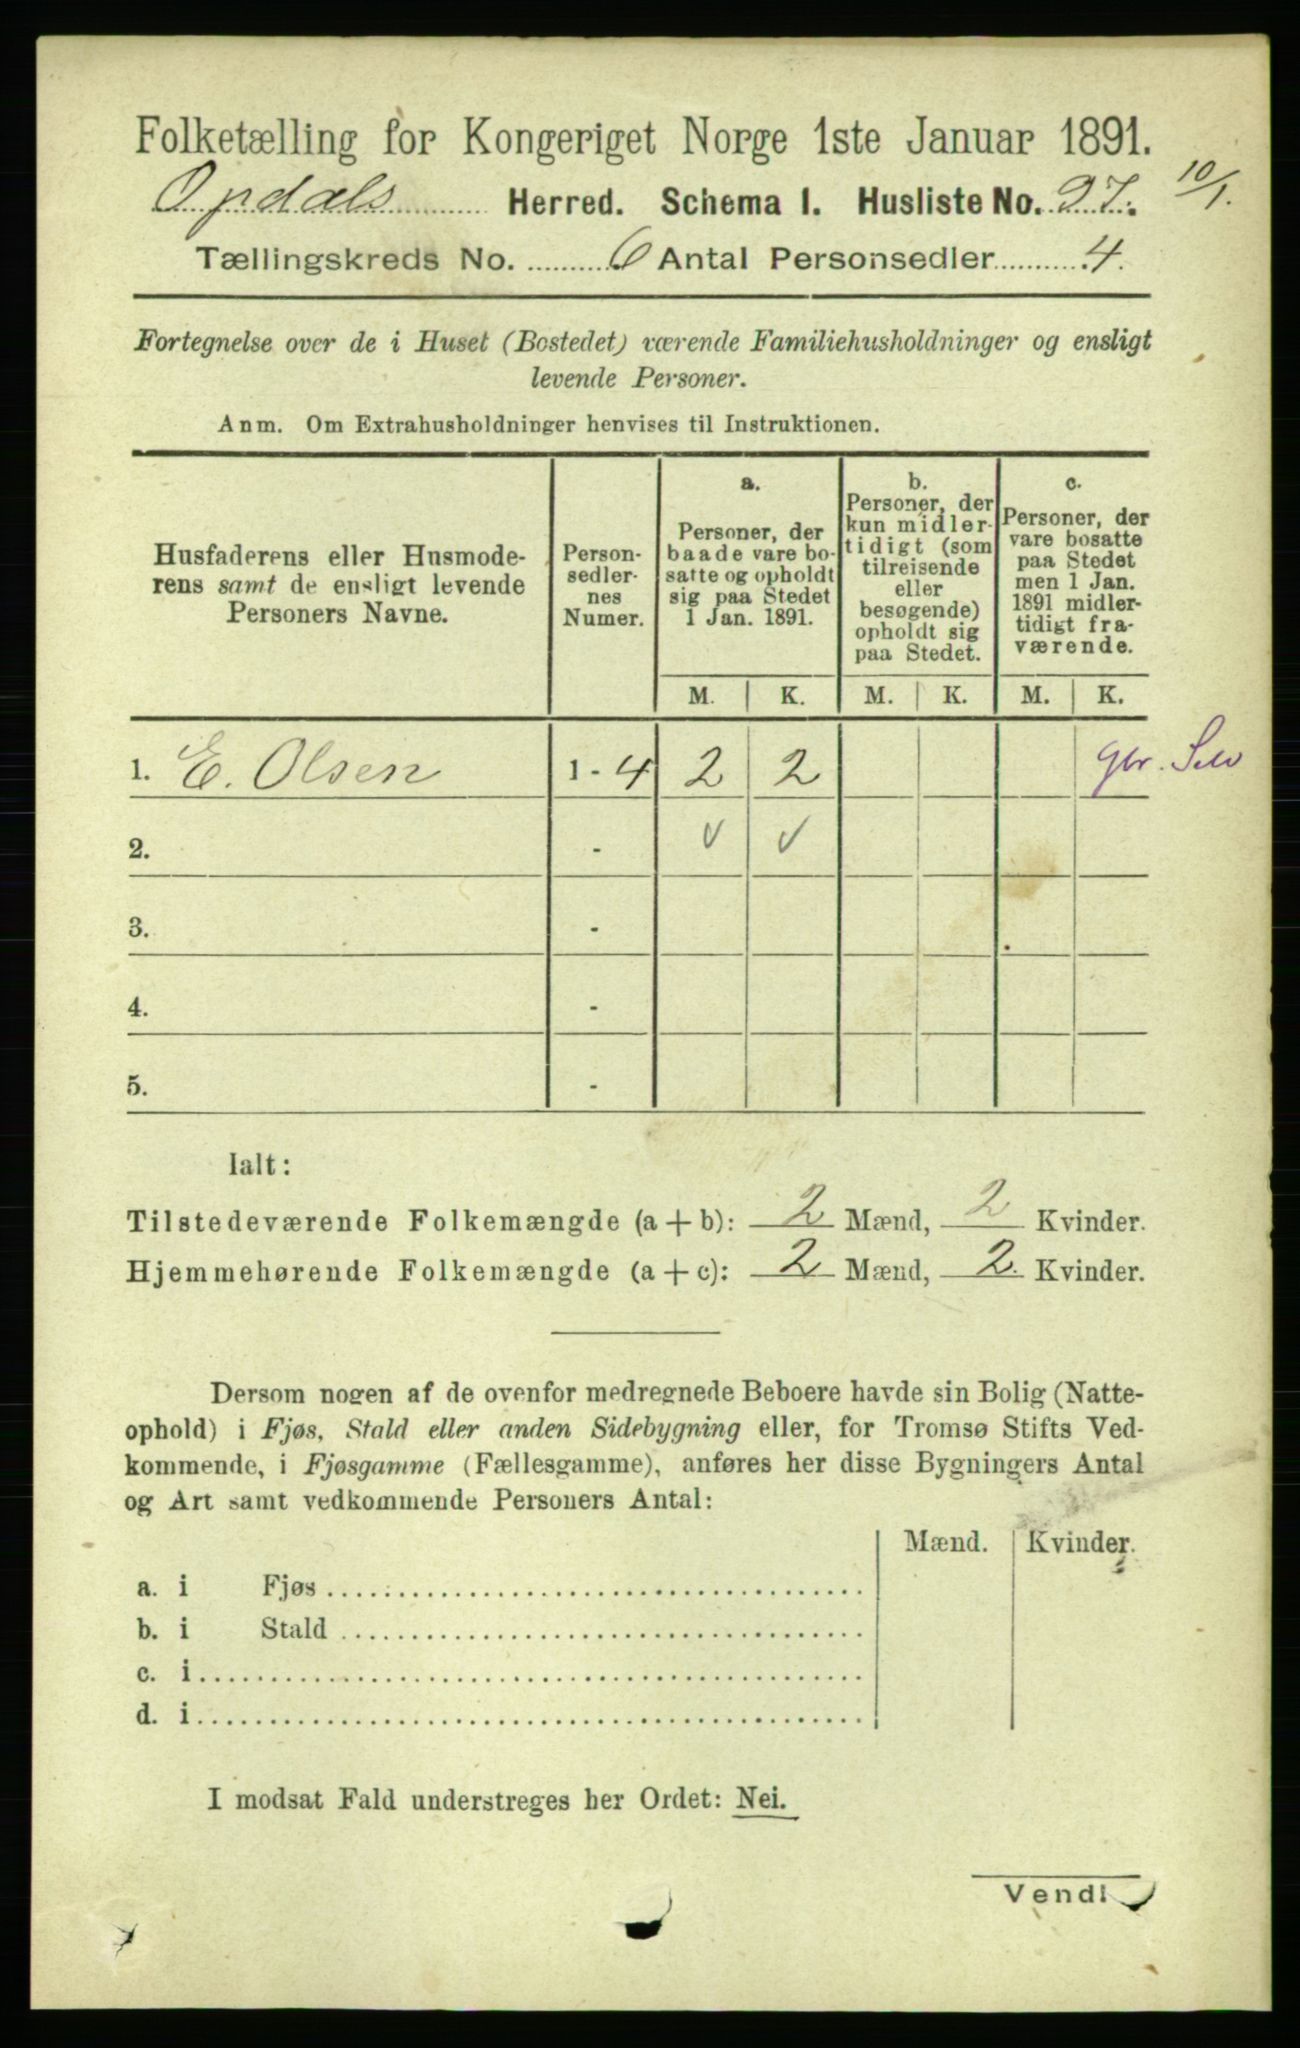 Folketælling for Kongeriget Norge 1ste Januar 1891.
Opdals Herred. Schema I. Husliste No. 27. 10/1.
Tællingskreds No. 6 Antal Personsedler 4.
Fortegnelse over de i Huset (Bostedet) værende Familiehusholdninger og ensligt
levende Personer.
Anm. Om Extrahusholdninger henvises til Instruktionen.
Husfaderens eller Husmode-
rens samt de ensligt levende
Personers Navne.
Person-
sedler-
nes
Numer.
a.
Personer, der
baade vare bo-
satte og opholdt
sig paa Stedet
1 Jan. 1891.
b.
Personer, der
kun midler-
tidigt (som
tilreisende
eller
besøgende)
opholdt sig
paa Stedet.
c.
Personer, der
vare bosatte
paa Stedet
men 1 Jan.
1891 midler-
tidigt fra-
værende.
M. K. M. K. M. K.
1. E. Olsen 1 - 4 2 2 Gbr. Selv
2. - ✓ ✓
3. -
4. -
5. -
Ialt:
Tilstedeværende Folkemængde (a + b): 2 Mænd, 2 Kvinder.
Hjemmehørende Folkemængde (a + c): 2 Mænd, 2. Kvinder.
Dersom nogen af de ovenfor medregnede Beboere havde sin Bolig (Natte-
ophold) i Fjøs, Stald eller anden Sidebygning eller, for Tromsø Stifts Ved-
kommende, i Fjøsgamme (Fællesgamme), anføres her disse Bygningers Antal
og Art samt vedkommende Personers Antal:
Mænd. Kvinder.
a. i Fjøs
b. i Stald
c. i
d. i
I modsat Fald understreges her Ordet: Nei.
Vend!